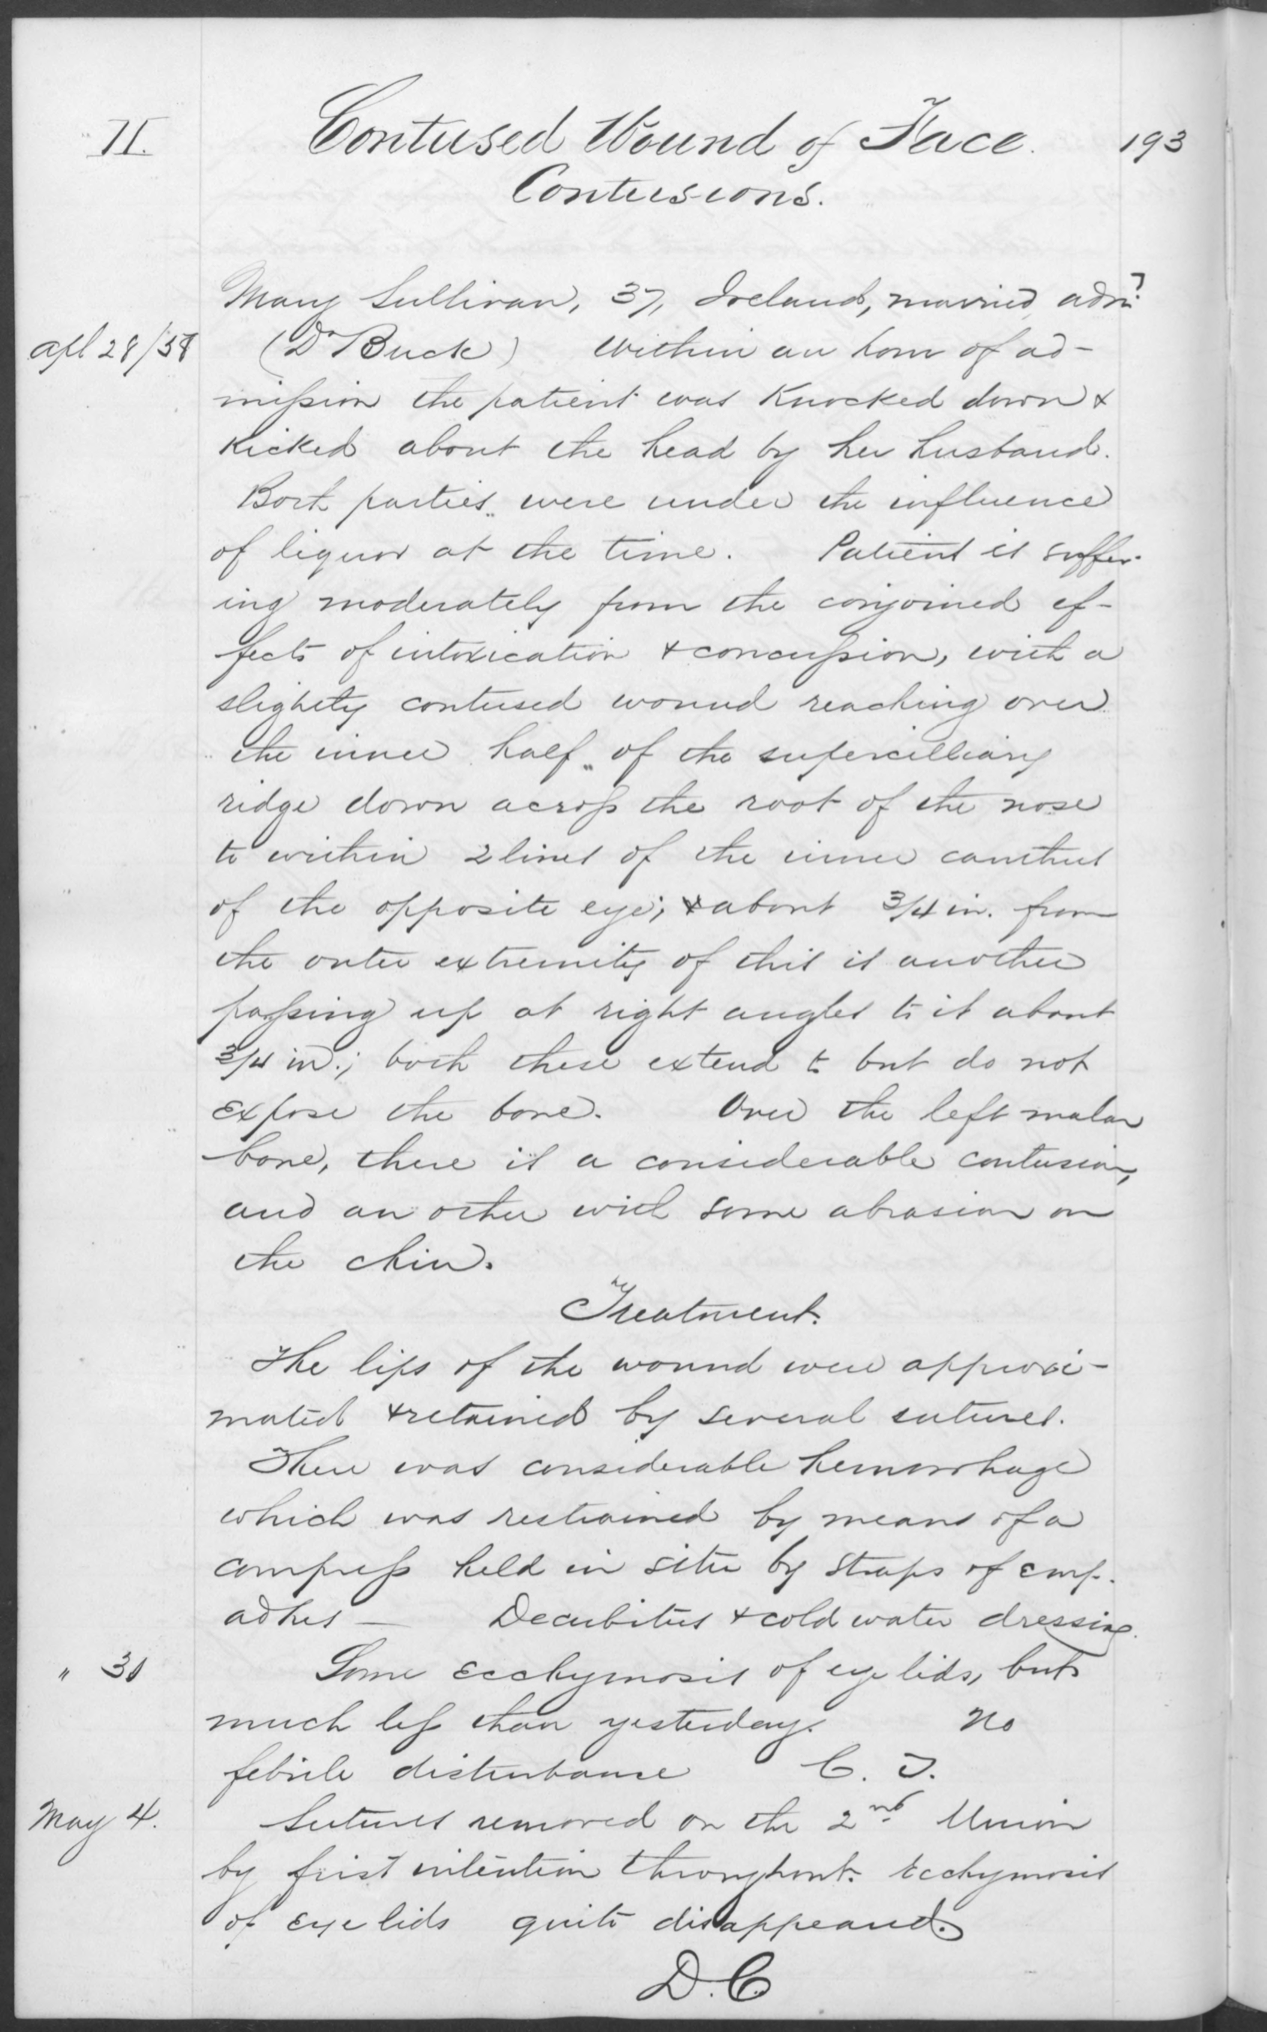 II.
Contused Wound of Face.
193
Contusions.
Mary Sullivan, 37, Ireland, married adm.
Apl 28/58
(Dr Buck) Within an hour of ad-
mission the patient was knocked down &
kicked about the head by her husband.
Both parties were under the influence
of liquor at the time. Patient is suffer-
ing moderately from the conjoined ef-
fects of intoxication & concussion, with a
slightly contused wound reaching over
the inner half of the supercilliary
ridge down across the root of the nose
to within 2 lines of the inner canthus
of the opposite eye; & about 3/4 in. from
the outer extremity of this is another
passing up at right angles to it about
3/4 in.; both these extend to but do not
expose the bone. Over the left malar
bone, there is a considerable contusion,
and an other with some abrasion on
the chin.
Treatment.
The lips of the wound were approxi-
mated & retained by several sutures.
There was considerable hemorrhage
which was restrained by means of a
compress held in situ by straps of emp.
adhes — Decubitus & cold water dressing.
" 30
Some ecchymosis of eye lids, but
much less than yesterday. No
febrile disturbance C. T.
May 4.
Sutures removed on the 2nd Union
by first intention throughout. Ecchymosis
of eye lids quite disappeared.
D.C.